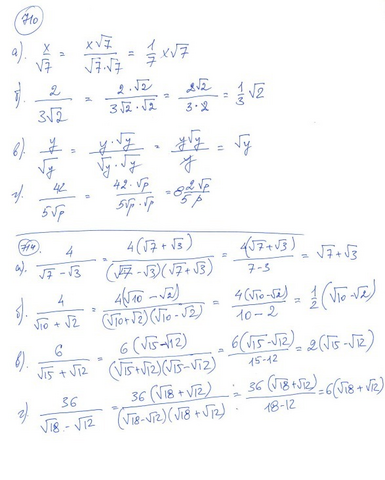 710
а). x/√7 = x√7/√7·√7 = 1/7 x√7
б). 2/3√2 = 2·√2/3√2·√2 = 2√2/3·2 = 1/3 √2
в). y/√y = y·√y/√y·√y = y√y/y = √y
г). 42/5√p = 42·√p/5√p·√p = 2√p/5p
714
а). 4/√7-√3 = 4(√7+√3)/(√7-√3)(√7+√3) = 4(√7+√3)/7-3 = √7+√3
б). 4/√10+√2 = 4(√10-√2)/(√10+√2)(√10-√2) = 4(√10-√2)/10-2 = 1/2 (√10-√2)
в). 6/√15+√12 = 6(√15-√12)/(√15+√12)(√15-√12) = 6(√15-√12)/15-12 = 2(√15-√12)
г). 36/√18-√12 = 36(√18+√12)/(√18-√12)(√18+√12) = 36(√18+√12)/18-12 = 6(√18+√12)